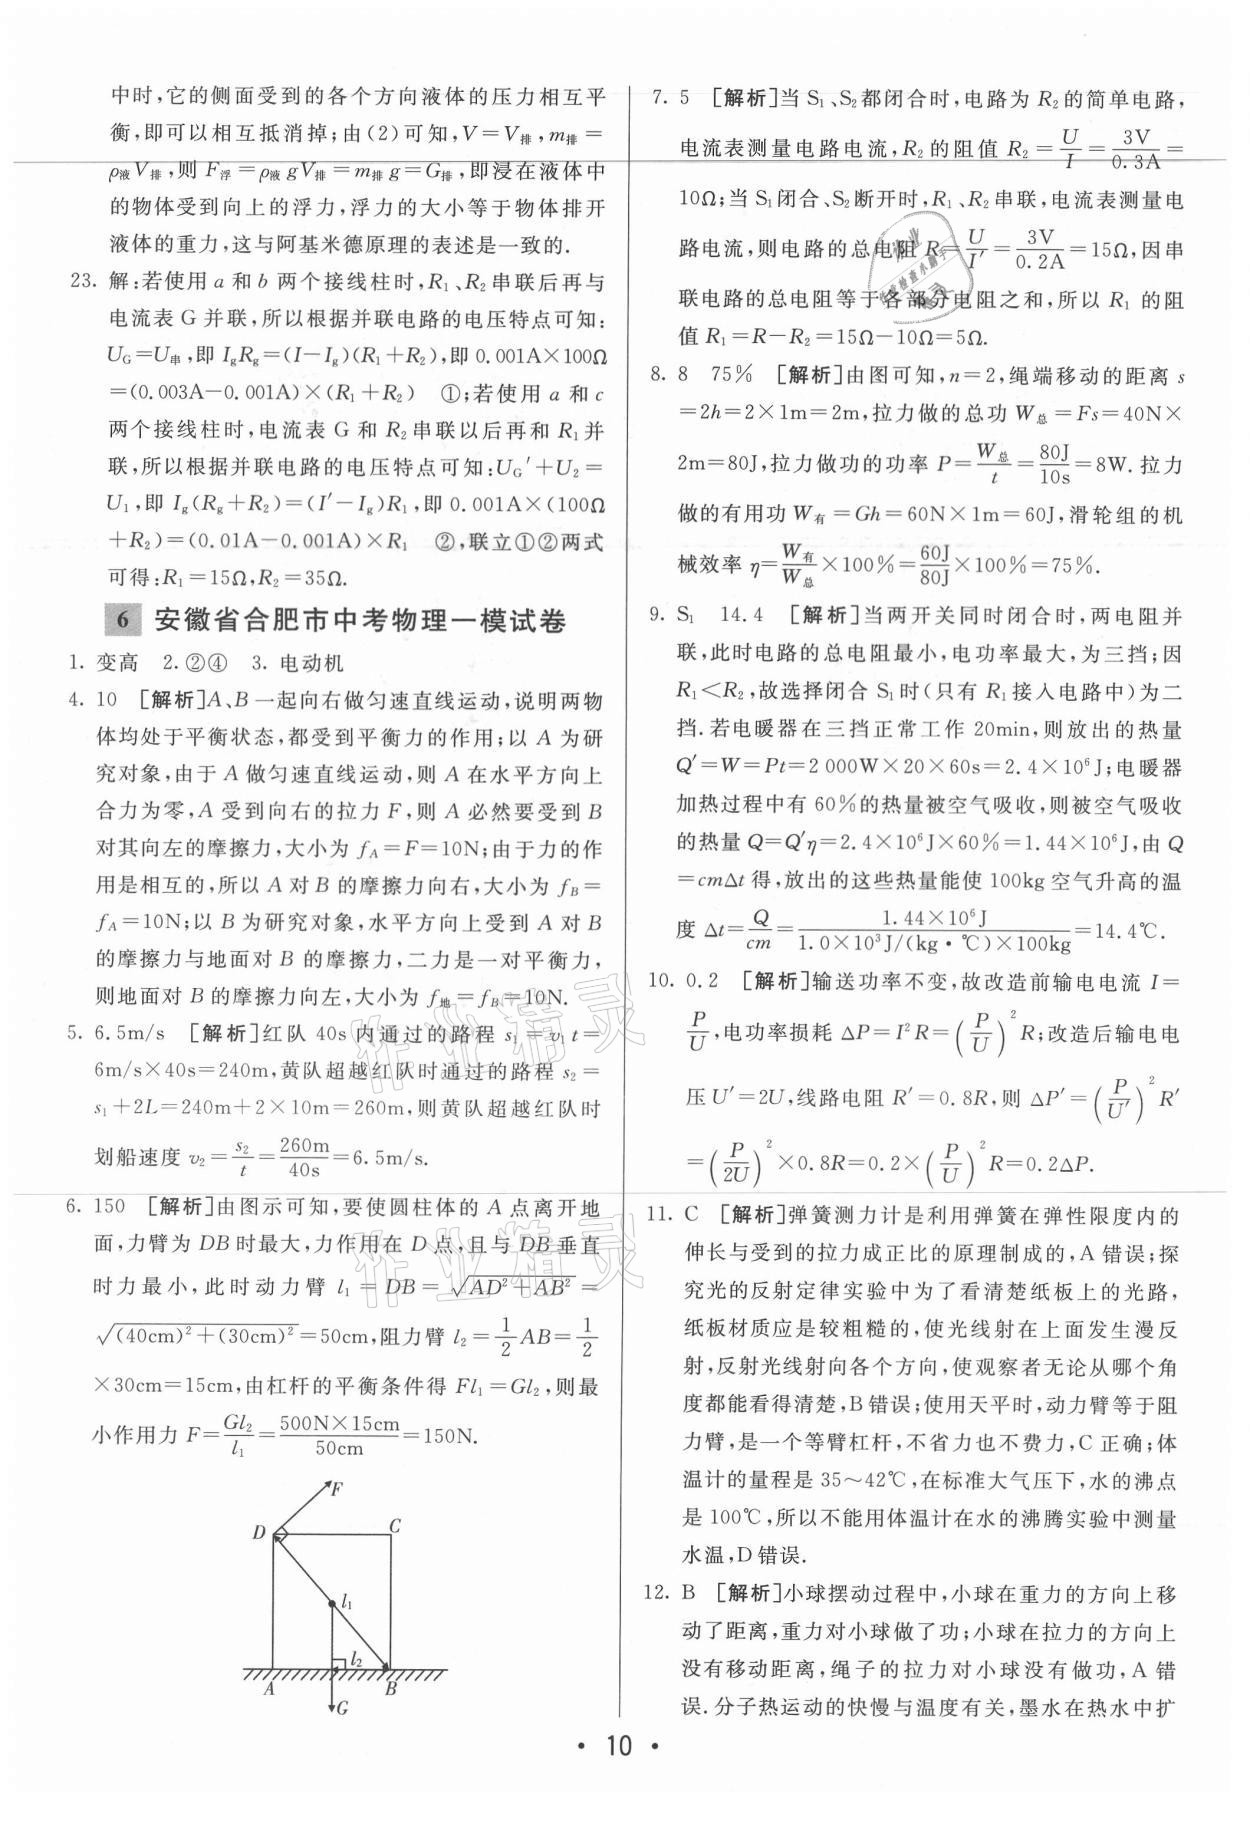 中时,它的侧面受到的各个方向液体的压力相互平
衡,即可以相互抵消掉;由(2)可知,V=V排,m排=
ρ液V排,则 F浮=ρ液gV排=m排g=G排,即浸在液体中
的物体受到向上的浮力,浮力的大小等于物体排开
液体的重力,这与阿基米德原理的表述是一致的.
23. 解:若使用 a 和 b 两个接线柱时,R₁、R₂ 串联后再与
电流表 G 并联,所以根据并联电路的电压特点可知:
UG=U串,即 IgRg=(I-Ig)(R₁+R₂),即 0.001A×100Ω
=(0.003A-0.001A)×(R₁+R₂) ①;若使用 a 和 c
两个接线柱时,电流表 G 和 R₂ 串联以后再和 R₁ 并
联,所以根据并联电路的电压特点可知:UG′+U₂=
U₁,即 Ig(Rg+R₂)=(I′-Ig)R₁,即 0.001A×(100Ω
+R₂)=(0.01A-0.001A)×R₁ ②,联立①②两式
可得:R₁=15Ω,R₂=35Ω.
6 安徽省合肥市中考物理一模试卷
1. 变高 2. ②④ 3. 电动机
4. 10 [解析]A、B 一起向右做匀速直线运动,说明两物
体均处于平衡状态,都受到平衡力的作用;以 A 为研
究对象,由于 A 做匀速直线运动,则 A 在水平方向上
合力为零,A 受到向右的拉力 F,则 A 必然要受到 B
对其向左的摩擦力,大小为 fA=F=10N;由于力的作
用是相互的,所以 A 对 B 的摩擦力向右,大小为 fB=
fA=10N;以 B 为研究对象,水平方向上受到 A 对 B
的摩擦力与地面对 B 的摩擦力,二力是一对平衡力,
则地面对 B 的摩擦力向左,大小为 f地=fB=10N.
5. 6.5m/s [解析]红队 40s 内通过的路程 s₁=v₁t=
6m/s×40s=240m,黄队超越红队时通过的路程 s₂=
s₁+2L=240m+2×10m=260m,则黄队超越红队时
划船速度 v₂=s₂/t=260m/40s=6.5m/s.
6. 150 [解析]由图示可知,要使圆柱体的 A 点离开地
面,力臂为 DB 时最大,力作用在 D 点,且与 DB 垂直
时力最小,此时动力臂 l₁=DB=√(AD²+AB²)=
√((40cm)²+(30cm)²)=50cm,阻力臂 l₂=1/2AB=1/2
×30cm=15cm,由杠杆的平衡条件得 Fl₁=Gl₂,则最
小作用力 F=Gl₂/l₁=500N×15cm/50cm=150N.
F
D C
l₁
l₂
A B
G
7. 5 [解析]当 S₁、S₂都闭合时,电路为 R₂ 的简单电路,
电流表测量电路电流,R₂ 的阻值 R₂=U/I=3V/0.3A=
10Ω;当 S₁闭合、S₂断开时,R₁、R₂串联,电流表测量电
路电流,则电路的总电阻 R=U/I′=3V/0.2A=15Ω,因串
联电路的总电阻等于各部分电阻之和,所以 R₁ 的阻
值 R₁=R-R₂=15Ω-10Ω=5Ω.
8. 8 75% [解析]由图可知,n=2,绳端移动的距离 s
=2h=2×1m=2m,拉力做的总功 W总=Fs=40N×
2m=80J,拉力做功的功率 P=W总/t=80J/10s=8W.拉力
做的有用功 W有=Gh=60N×1m=60J,滑轮组的机
械效率 η=W有/W总×100%=60J/80J×100%=75%.
9. S₁ 14.4 [解析]当两开关同时闭合时,两电阻并
联,此时电路的总电阻最小,电功率最大,为三挡;因
R₁<R₂,故选择闭合 S₁时(只有 R₁接入电路中)为二
挡.若电暖器在三挡正常工作 20min,则放出的热量
Q′=W=Pt=2 000W×20×60s=2.4×10⁶J;电暖器
加热过程中有 60%的热量被空气吸收,则被空气吸收
的热量 Q=Q′η=2.4×10⁶J×60%=1.44×10⁶J,由 Q
=cmΔt 得,放出的这些热量能使 100kg 空气升高的温
度 Δt=Q/cm=1.44×10⁶J/1.0×10³J/(kg·℃)×100kg=14.4℃.
10. 0.2 [解析]输送功率不变,故改造前输电电流 I=
P/U,电功率损耗 ΔP=I²R=(P/U)²R;改造后输电电
压 U′=2U,线路电阻 R′=0.8R,则 ΔP′=(P/U′)²R′
=(P/2U)²×0.8R=0.2×(P/U)²R=0.2ΔP.
11. C [解析]弹簧测力计是利用弹簧在弹性限度内的
伸长与受到的拉力成正比的原理制成的,A 错误;探
究光的反射定律实验中为了看清楚纸板上的光路,
纸板材质应是较粗糙的,使光线射在上面发生漫反
射,反射光线射向各个方向,使观察者无论从哪个角
度都能看得清楚,B 错误;使用天平时,动力臂等于阻
力臂,是一个等臂杠杆,不省力也不费力,C 正确;体
温计的量程是 35~42℃,在标准大气压下,水的沸点
是 100℃,所以不能用体温计在水的沸腾实验中测量
水温,D 错误.
12. B [解析]小球摆动过程中,小球在重力的方向上移
动了距离,重力对小球做了功;小球在拉力的方向上
没有移动距离,绳子的拉力对小球没有做功,A 错
误.分子热运动的快慢与温度有关,墨水在热水中扩
• 10 •
作业精灵
作业精灵